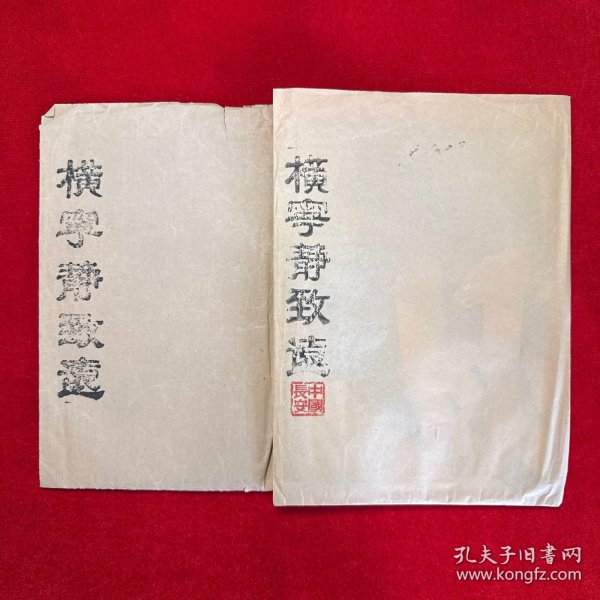 橫寜静致遠
橫寜静致遠
中國
長安
孔夫子旧書网
www.kongfz.com